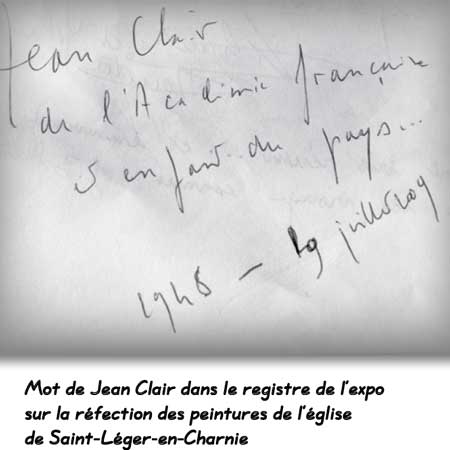 Jean Clair
de l'Académie française
& enfant du pays...
1948 – juillet
Mot de Jean Clair dans le registre de l'expo
sur la réfection des peintures de l'église
de Saint-Léger-en-Charnie